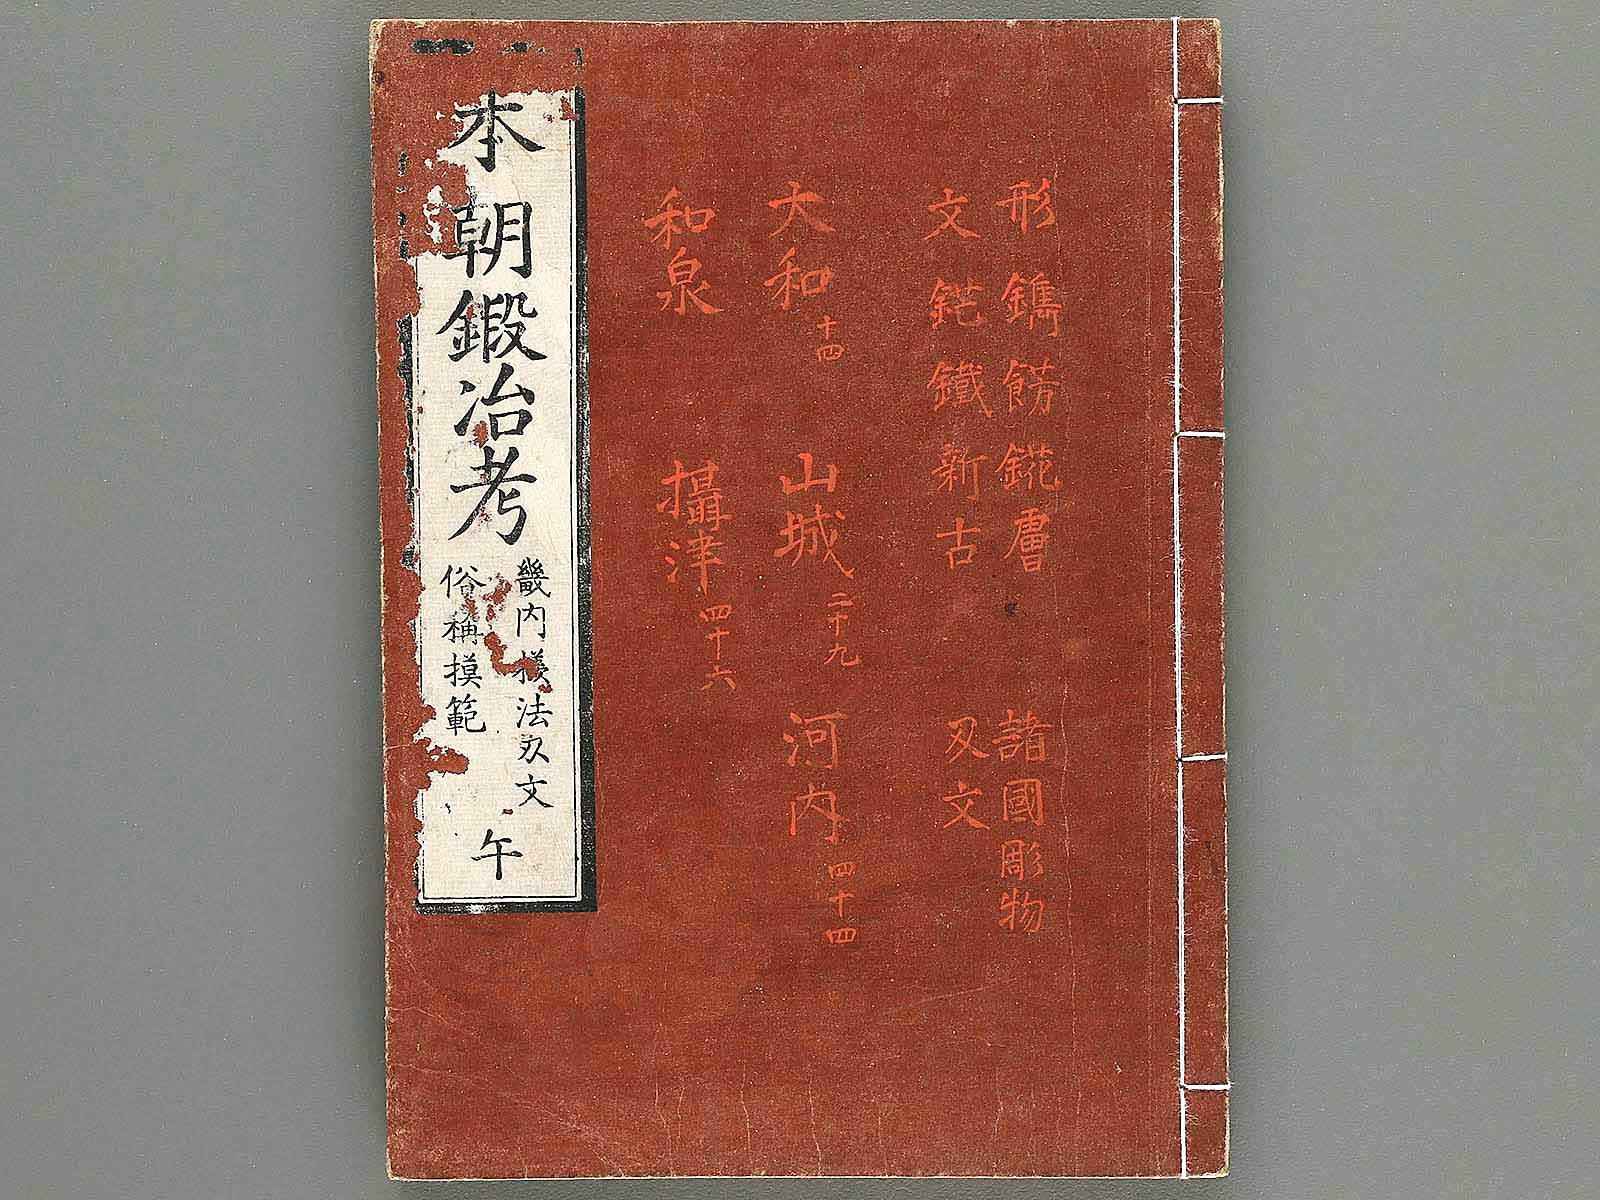 形鐫餝錵膚 諸國彫物
文鉋鐵新古 刄文
大和十四 山城二十九 河内四十四
和泉 攝津四十六
本朝鍛冶考
畿内樣法刄文
俗稱摸範
午